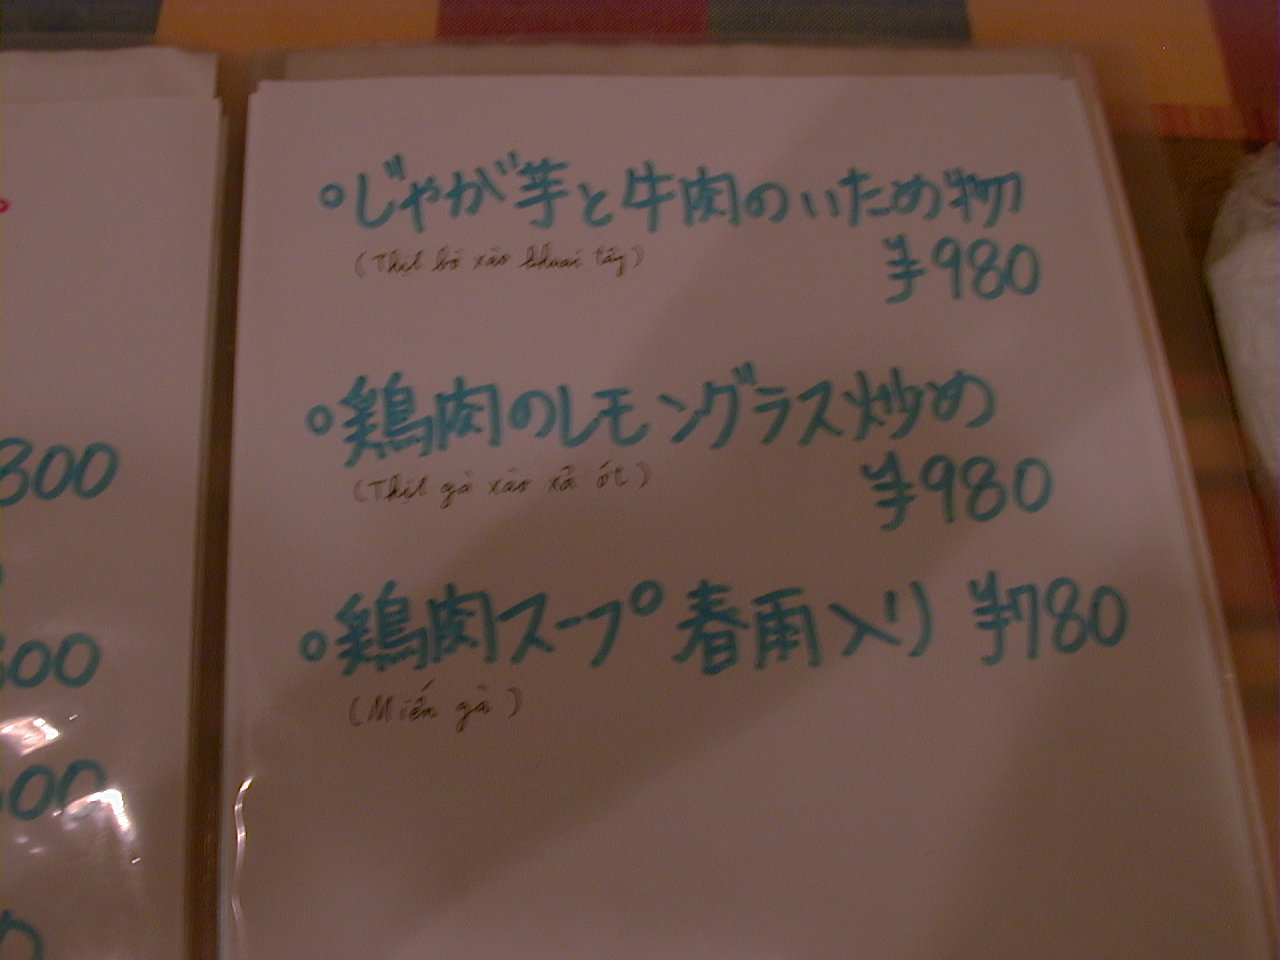 300
500
500
○じゃが芋と牛肉のいため物
(Thịt bò xào khoai tây)
¥980
○鶏肉のレモングラス炒め
(Thịt gà xào xả ớt)
¥980
○鶏肉スープ春雨入り ¥780
(Miến gà)